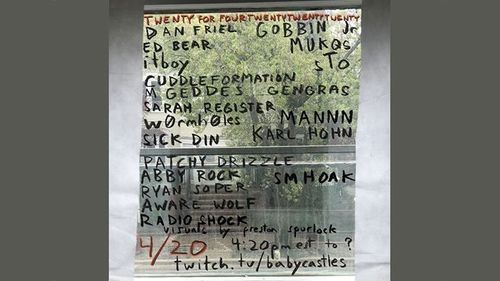 TWENTY FOR FOURTWENTYTWENTYTWENTY
DAN FRIEL GOBBIN Jr
ED BEAR MUKQS
itboy sTO
CUDDLEFORMATION
M GEDDES GENGRAS
SARAH REGISTER
w0rmh0les MANNN
SICK DIN KARL HOHN
PATCHY DRIZZLE
ABBY ROCK SMHOAK
RYAN SOPER
AWARE WOLF
RADIO SHOCK
visuals by preston spurlock
4/20 4:20pm est to ?
twitch.tv/babycastles